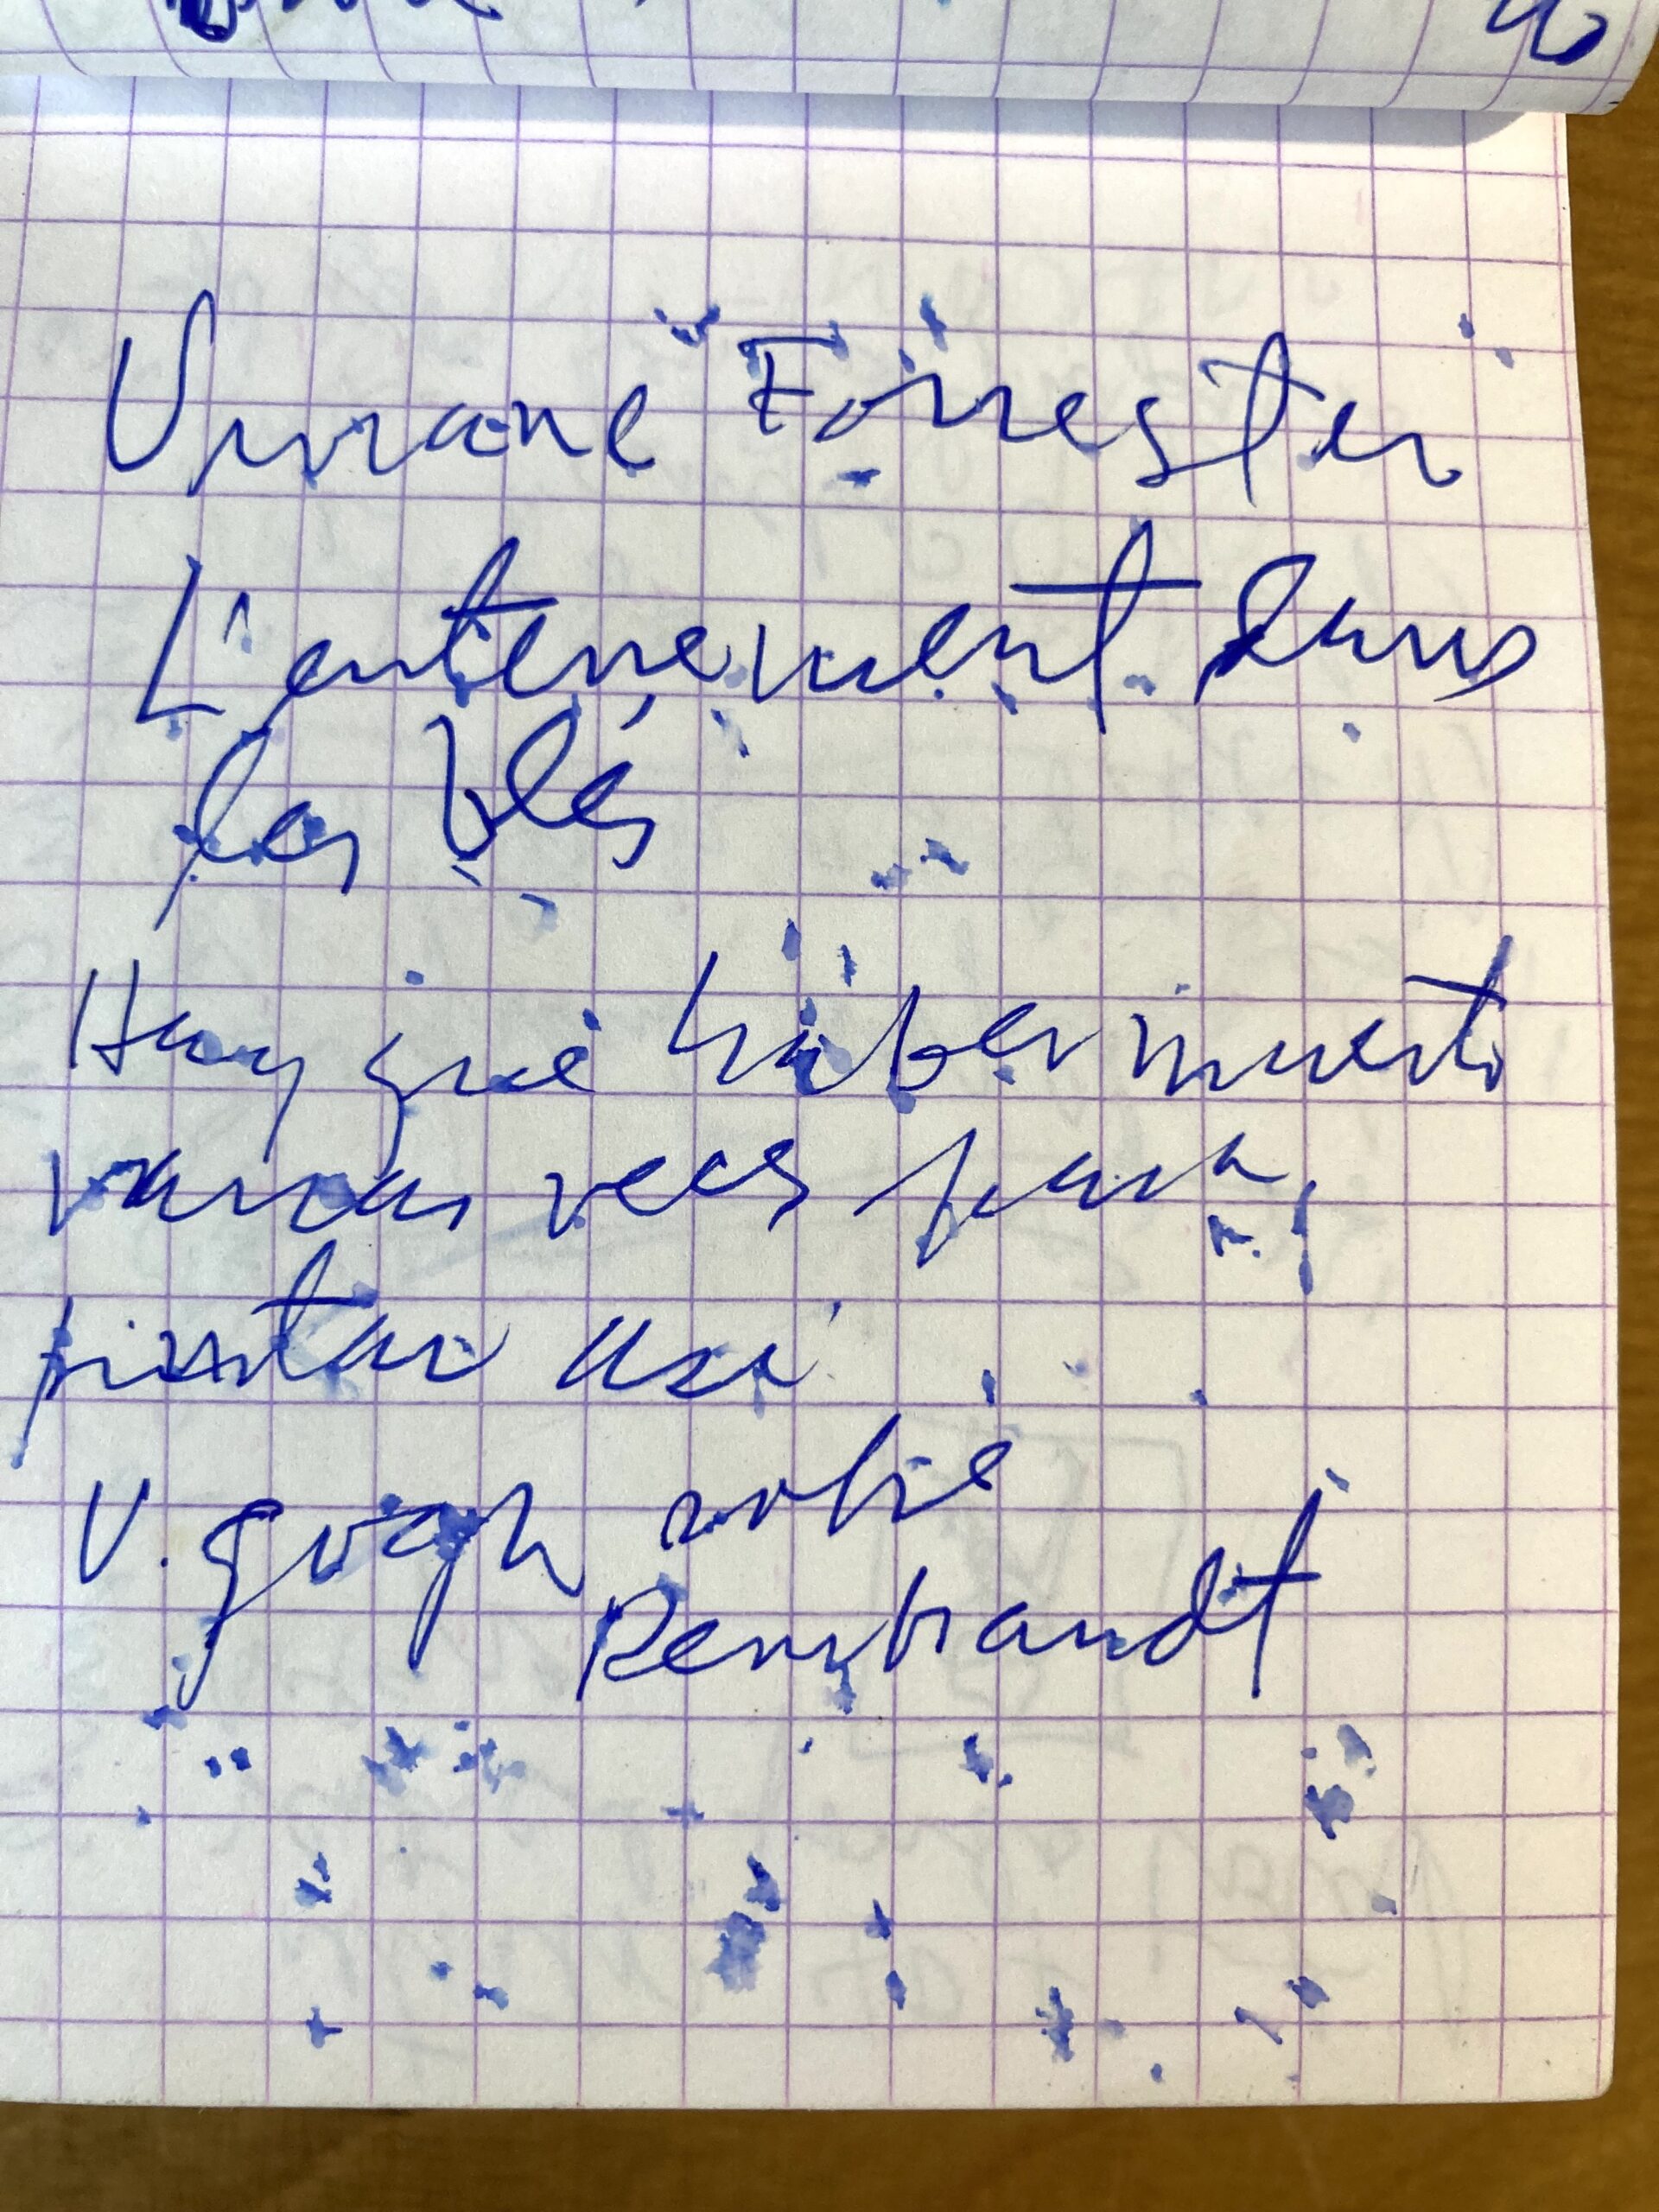 Viviane Forrester
L'enterrement dans
les blés
Hay que haber muerto
varias veces para
pintar así
V. gogh sobre
Rembrandt